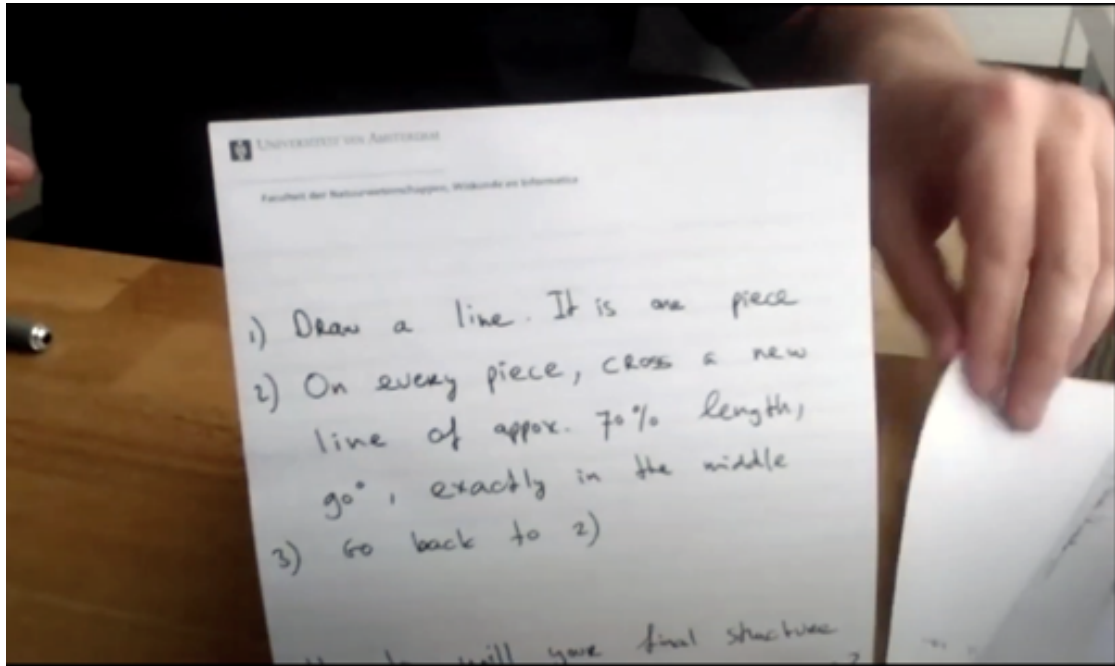 UNIVERSITEIT VAN AMSTERDAM
Faculteit der Natuurwetenschappen, Wiskunde en Informatica
1) Draw a line. It is one piece
2) On every piece, cross a new
line of appox. 70% length,
90°, exactly in the middle
3) Go back to 2)
will your final structure
?